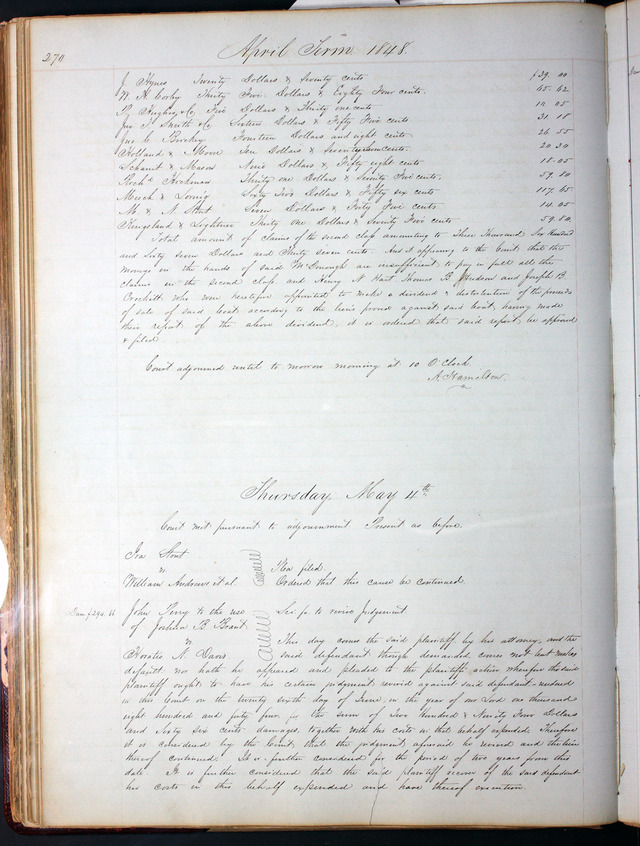 270
April Term 1848
J. Hynes Twenty Dollars & Seventy cents $39.00
W. H. Corby Thirty Five Dollars & Eighty Four cents. 65.62
Hughes & Co. Five Dollars & Thirty one cents 10.05
Jno. T. Smith & Co Sixteen Dollars & Fifty Five cents 31 18
Jno C Fourteen Dollars and eight cents. 26 55
Holland & Moore Ten Dollars & Seventy cents 20 30
& Mason Nine Dollars & Fifty eight cents 18.05
Thirty one Dollars & Seventy Five cents. 59.10
Meech & Loring Sixty Two Dollars & Fifty six cents 117.65
M. & N. Stout Seven Dollars & Forty Five cents 14.05
Kingsland & Lightner Thirty one Dollars & Seventy Five cents 59.10
Total amount of claims of the second class amounting to Three Thousand Six Hundred
and Sixty seven Dollars and Thirty seven cents. And it appearing to the Court that the
moneys in the hands of said McDonough are insufficient to pay in full all the
claims in the second class, and Henry N. Hart Thomas B. Hudson and Joseph B.
Crockett who were heretofore appointed to make a dividend & distribution of the proceeds
of sale of said boat according to the liens proved against said boat, having made
their report of the above dividend, it is ordered that said report be approved
& filed
Court adjourned until to morrow morning at 10 O'Clock
A. Hamilton.
Thursday May 4th
Court met pursuant to adjournment Present as before.
Ira Stout
vs Plea filed.
William Andrews et al. Ordered that this cause be continued.
Dam $294.66 John Perry to the use Sci. fa. to revive Judgement
of Joshua B. Brant
vs This day comes the said plaintiff by his attorney, and the
Horatio N. Davis said defendant though demanded comes not but makes
default nor hath he appeared and pleaded to the plaintiffs action wherefore the said
plaintiff ought to have his certain judgment revived against said defendant rendered
in this Court on the twenty sixth day of June in the year of our Lord one thousand
eight hundred and forty four, for the sum of Two Hundred & Ninety Four Dollars
and Sixty Six cents damages, together with his costs in that behalf expended. Therefore
it is considered by the Court, that the judgment aforesaid be revived and the lien
thereof continued. It is further considered for the period of two years from this
date. It is further considered that the said plaintiff recover of the said defendant
his costs in this behalf expended and have thereof execution.